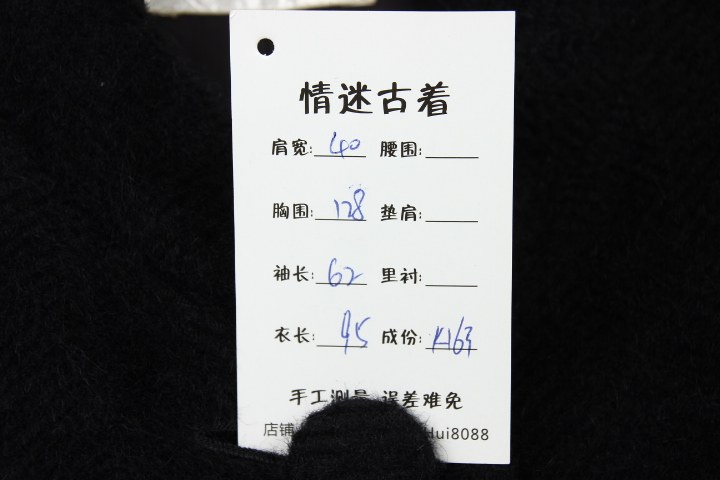 情迷古着
肩宽: 40 腰围:
胸围: 128 垫肩:
袖长: 62 里衬:
衣长: 95 成份: K163
手工测量 误差难免
店铺 Hui8088